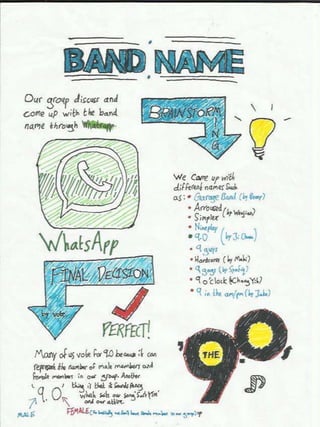 BAND NAME
Our group discuss and
come up with the band
name through Whatsapp
BRAINSTORM
ING
WhatsApp
We came up with
different names such
as: • Garage Band (by
• Aroused
• Simplex (by
• Nineplay
• 9.0 (by Ji
• 9 guys
• Hardcore (by Mahi)
• 9 gags (by
• 9 o'clock
• 9 in the am/pm (by Jake)
FINAL DECISION
by vote
PERFECT!
Many of us vote for 9.0 because it can
represent the number of male members and
female members in our group. Another
thing is that it sounds fancy
which suits our song
and our attire.
'9.0'
MALE
FEMALE (So basically we don't have female member in our group)
THE
9.0